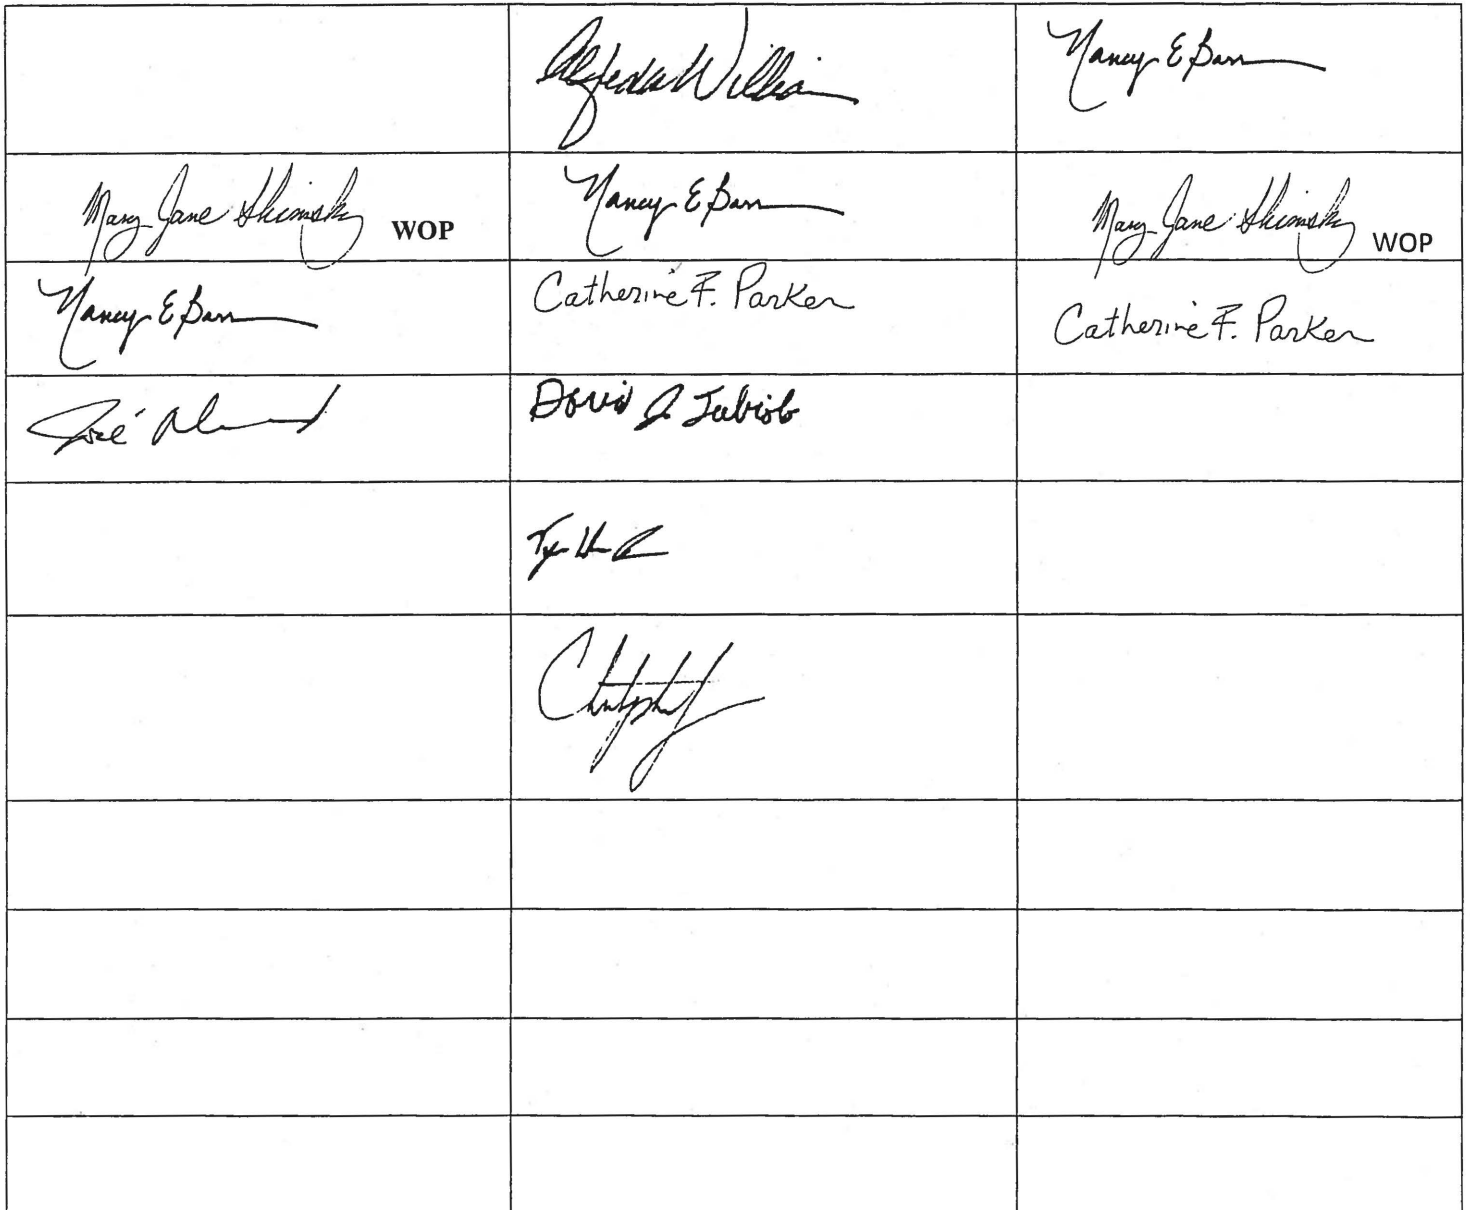 Alfreda William Nancy E Barr
Mary Jane Shimsky WOP Nancy E Barr Mary Jane Shimsky WOP
Nancy E Barr Catherine F. Parker Catherine F. Parker
José David J. Tubiolo